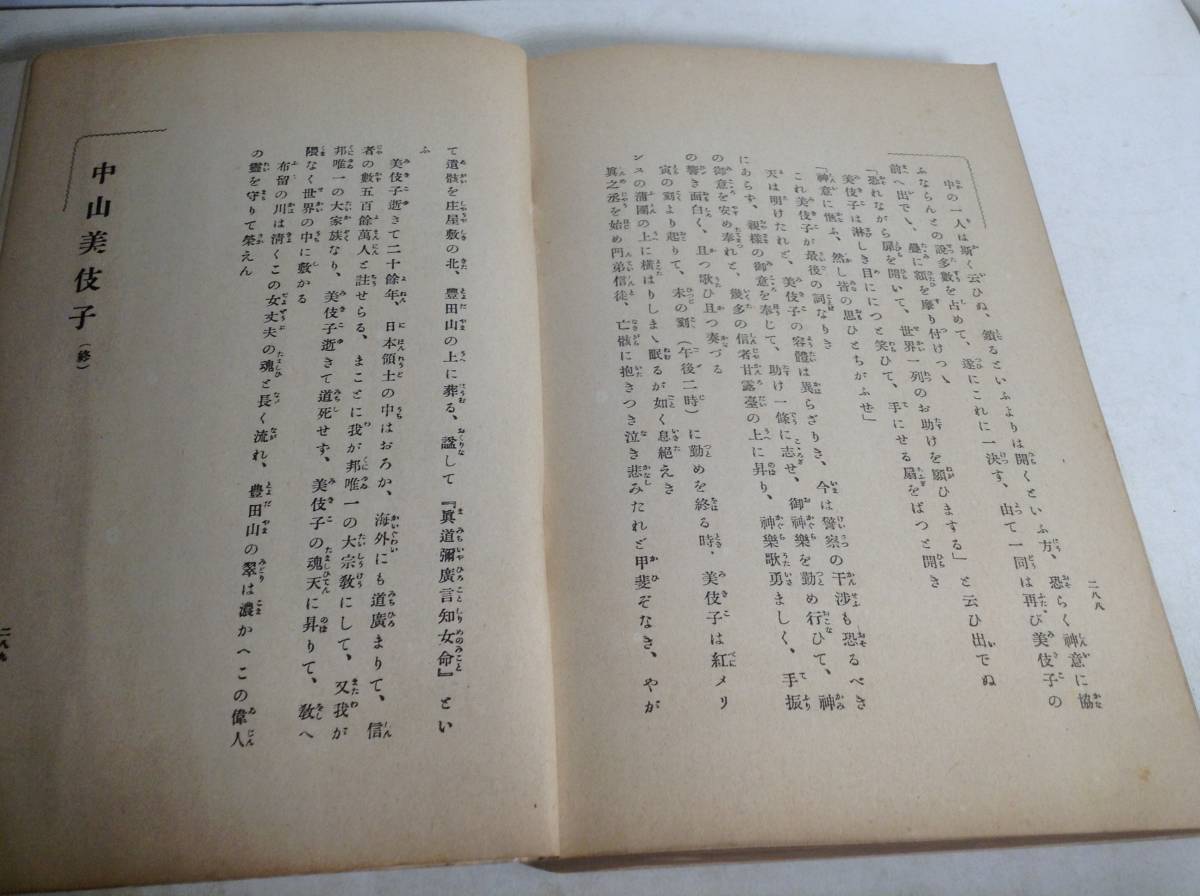 二八八
中の一人は斯く云ひぬ、鎖るといふよりは開くといふ方、恐らく神意に協
ふならんとの說多數を占めて、遂にこれに一決す、由て一同は再び美伎子の
前へ出で、疊に額を摩り付けつゝ
「恐れながら扉を開いて、世界一列のお助けを願ひまする」と云ひ出でぬ
美伎子は淋しき目ににつと笑ひて、手にせる扇をばつと開き
「神意に愜ふ、然し皆の思ひとちがふせ」
これ美伎子が最後の詞なりき
天は明けたれど、美伎子の容體は異らざりき、今は警察の干渉も恐るべき
にあらず、親樣の御意を奉じて、助け一條に志せ、御神樂を勤め行ひて、神
の御意を安め奉れと、幾多の信者甘露臺の上に昇り、神樂歌勇ましく、手振
の響き面白く、且つ歌ひ且つ奏づる
寅の刻より起りて、未の刻(午後二時)に勤めを終る時、美伎子は紅メリ
ンスの蒲團の上に橫はりしまゝ眠るが如く息絕えき
眞之丞を始め門弟信徒、亡骸に抱きつき泣き悲みたれど甲斐ぞなき、やが
て遺骸を庄屋敷の北、豊田山の上に葬る、諡して『眞道彌廣言知女命』とい
ふ
美伎子逝きて二十餘年、日本領土の中はおろか、海外にも道廣まりて、信
者の數五百餘萬人と註せらる、まことに我が邦唯一の大宗敎にして、又我が
邦唯一の大家族なり、美伎子逝きて道死せず、美伎子の魂天に昇りて、敎へ
隈なく世界の中に敷かる
布留の川は淸くこの女丈夫の魂と長く流れ、豊田山の翠は濃かへこの偉人
の靈を守りて榮えん
中山美伎子(終)
二八九